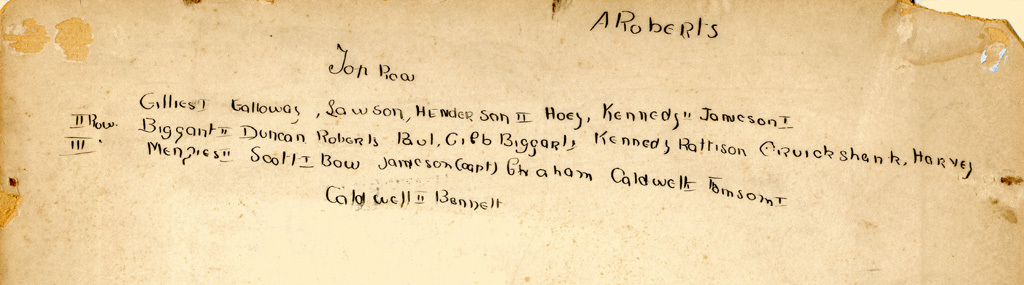 A Roberts
Top Row
Gillies I Galloway, Lawson, Henderson II Hoey, Kennedy II Jameson I
II Row. Biggart II Duncan Roberts Paul, Gibb Biggart I, Kennedy Pattison Cruickshank, Harvey
III. Menzies II Scott I Bow Jameson (capt) Graham Caldwell I Tomson I
Caldwell II Bennett